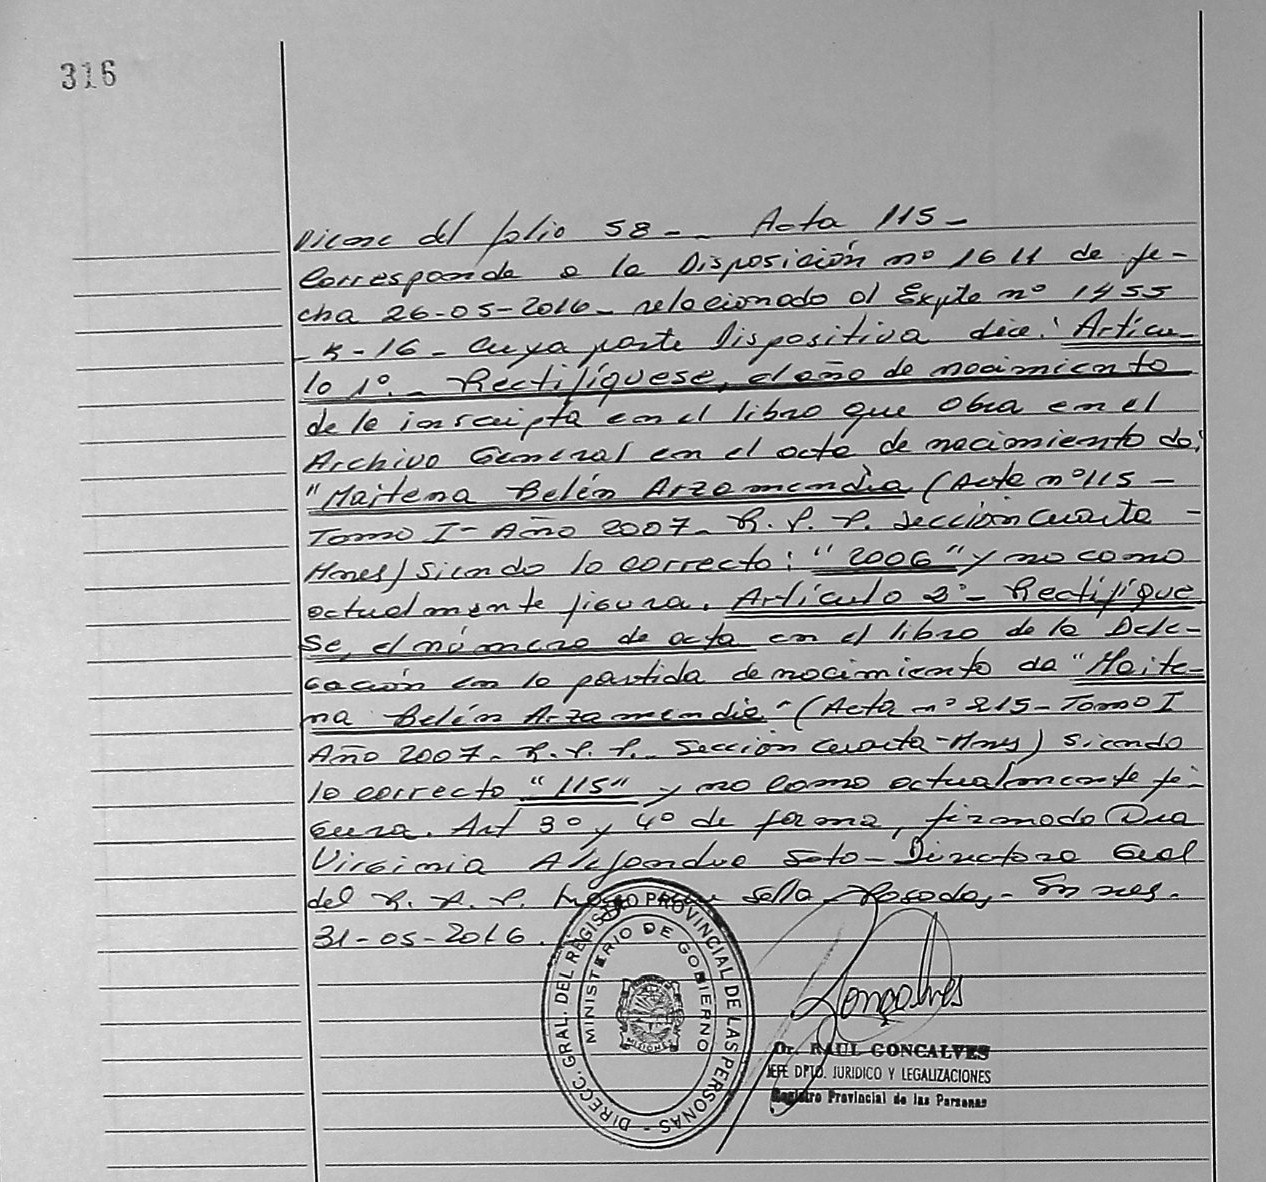 316
Viene del folio 58 -- Acta 115-
Corresponde a la Disposición nº 1611 de fe-
cha 26-05-2016- relacionado al Expte nº 1455
-K-16- cuya parte Dispositiva dice: Artícu-
lo 1º.- Rectifíquese, el año de nacimiento
de la inscripta en el libro que Obra en el
Archivo General en el acta de nacimiento de:
"Maitena Belén Arzamendia (Acta nº 115-
Tomo I- Año 2007- R.P.P. Sección Cuarta -
Mnes) siendo lo correcto: "2006" y no como
actualmente figura. Artículo 2º- Rectifíque
se, el número de acta en el libro de la Dele-
gación en la partida de nacimiento de "Maite-
na Belén Arzamendia" (Acta nº 215- Tomo I
Año 2007- R.P.P.- Sección Cuarta-Mnes) siendo
lo correcto "115" y no como actualmente fi-
gura. Art 3º y 4º de forma, firmado Dra
Virginia Alejandra Soto- Directora Gral
del R.P.P. sello Posadas,- Mnes.
31-05-2016.
DIRECC. GRAL. DEL REGISTRO PROVINCIAL DE LAS PERSONAS -
MINISTERIO DE GOBIERNO
MISIONES
Gonçalves
Dr. RAUL GONCALVES
JEFE DPTO. JURIDICO Y LEGALIZACIONES
Registro Provincial de las Personas